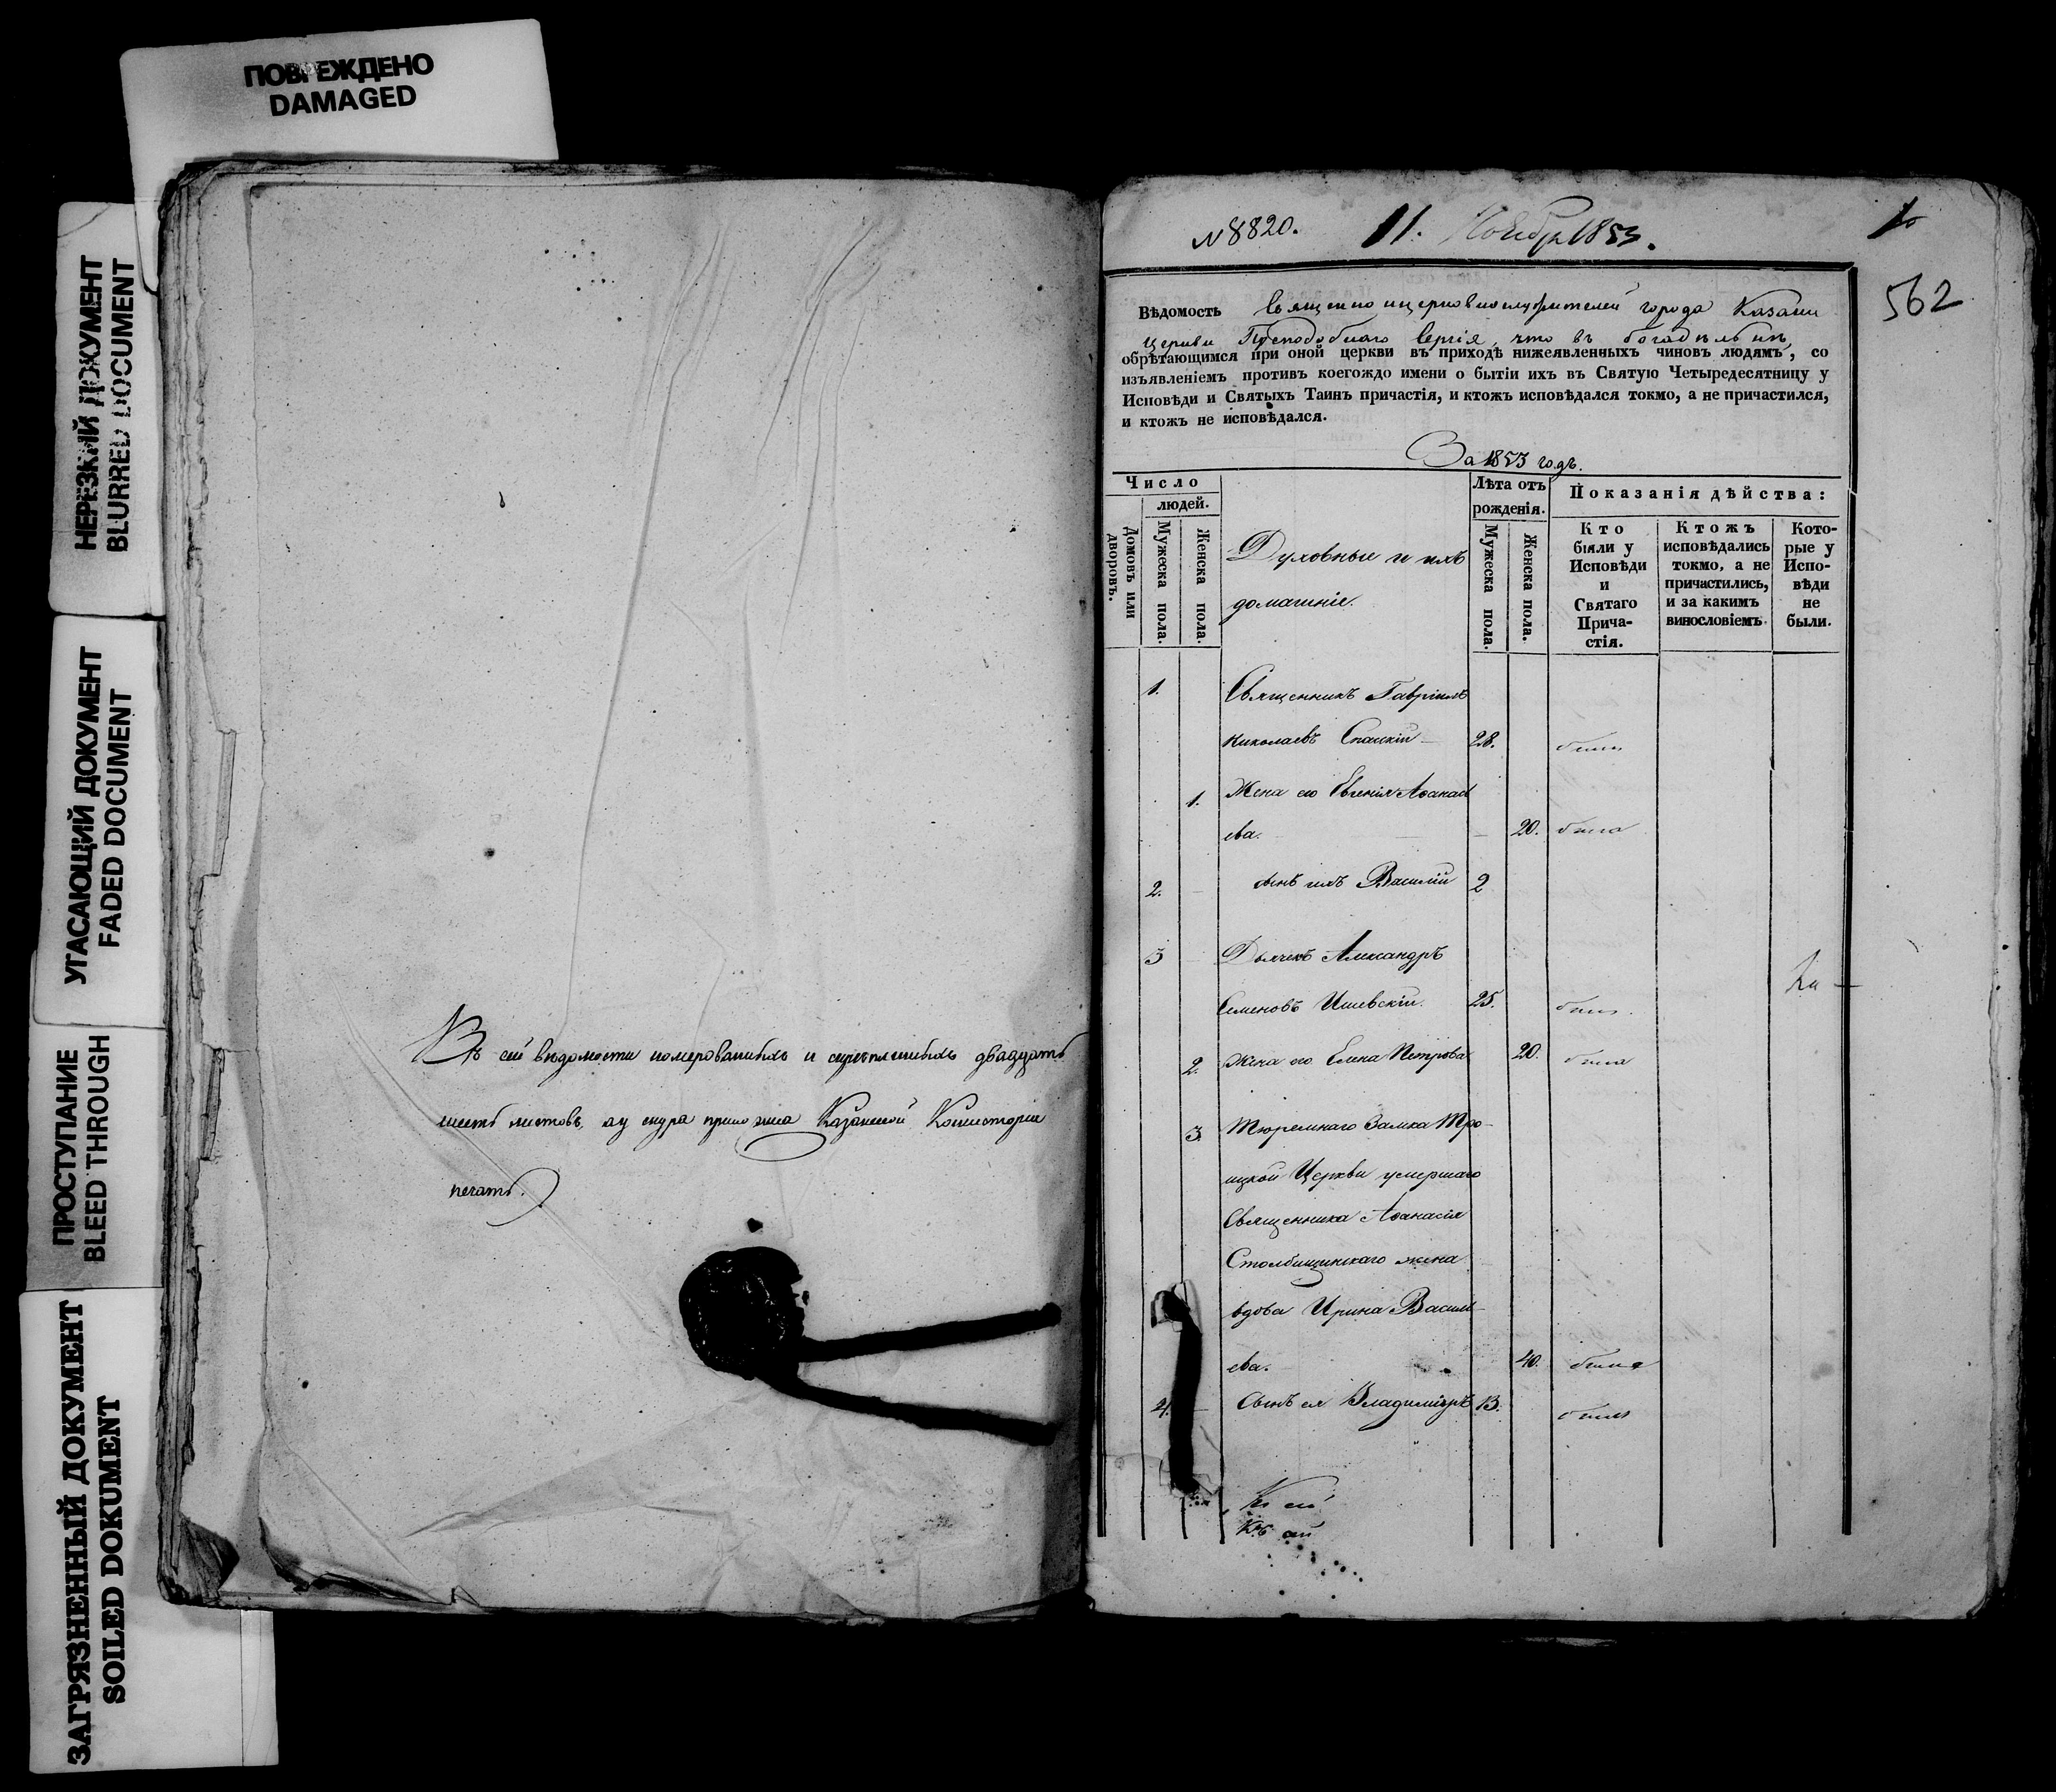 ПОВРЕЖДЕНО
DAMAGED
НЕРЕЗКИЙ ДОКУМЕНТ
BLURRED DOCUMENT
УГАСАЮЩИЙ ДОКУМЕНТ
FADED DOCUMENT
ПРОСТУПАНИЕ
BLEED THROUGH
ЗАГРЯЗНЕННЫЙ ДОКУМЕНТ
SOILED DOKUMENT
Въ сей вѣдомости номерованныхъ и скрѣпленныхъ двадцать
шесть листовъ, а у снура приложена Казанской Консисторіи
печать.
№ 8820. 11. Ноября 1853.
562
Вѣдомость Священно и церковнослужителей города Казани
Церкви Преподобнаго Сергія, что въ богадѣльнѣ,
обрѣтающимся при оной церкви въ приходѣ нижеявленныхъ чиновъ людямъ, со
изъявленіемъ противъ коегождо имени о бытіи ихъ въ Святую Четыредесятницу у
Исповѣди и Святыхъ Таинъ причастія, и ктожъ исповѣдался токмо, а не причастился,
и ктожъ не исповѣдался.
За 1853 годъ.
Число
людей.
Домовъ или дворовъ.
Мужеска пола.
Женска пола.
Духовные и ихъ
домашніе.
Лѣта отъ
рожденія.
Мужеска пола.
Женска пола.
Показанія дѣйства:
Кто
были у
Исповѣди
и
Святаго
Прича-
стія.
Ктожъ
исповѣдались
токмо, а не
причастились,
и за какимъ
винословіемъ.
Кото-
рые у
Испо-
вѣди
не
были.
1. Священникъ Гавріилъ
Николаевъ Спасскій 28. былъ
1. Жена его Евгенія Аѳанась
ева. 20. была
2. сынъ ихъ Василій 2
3 Дьячекъ Александръ
Семеновъ Ишевскій. 25. былъ.
2. Жена его Елена Петрова 20. была
3. Тюремнаго Замка Тро-
ицкой Церкви умершаго
Священника Аѳанасія
Столбищинскаго жена
вдова Ирина Василь-
ева. 40. была
4. Сынъ ея Владиміръ 13. былъ
Къ сей
Къ сей